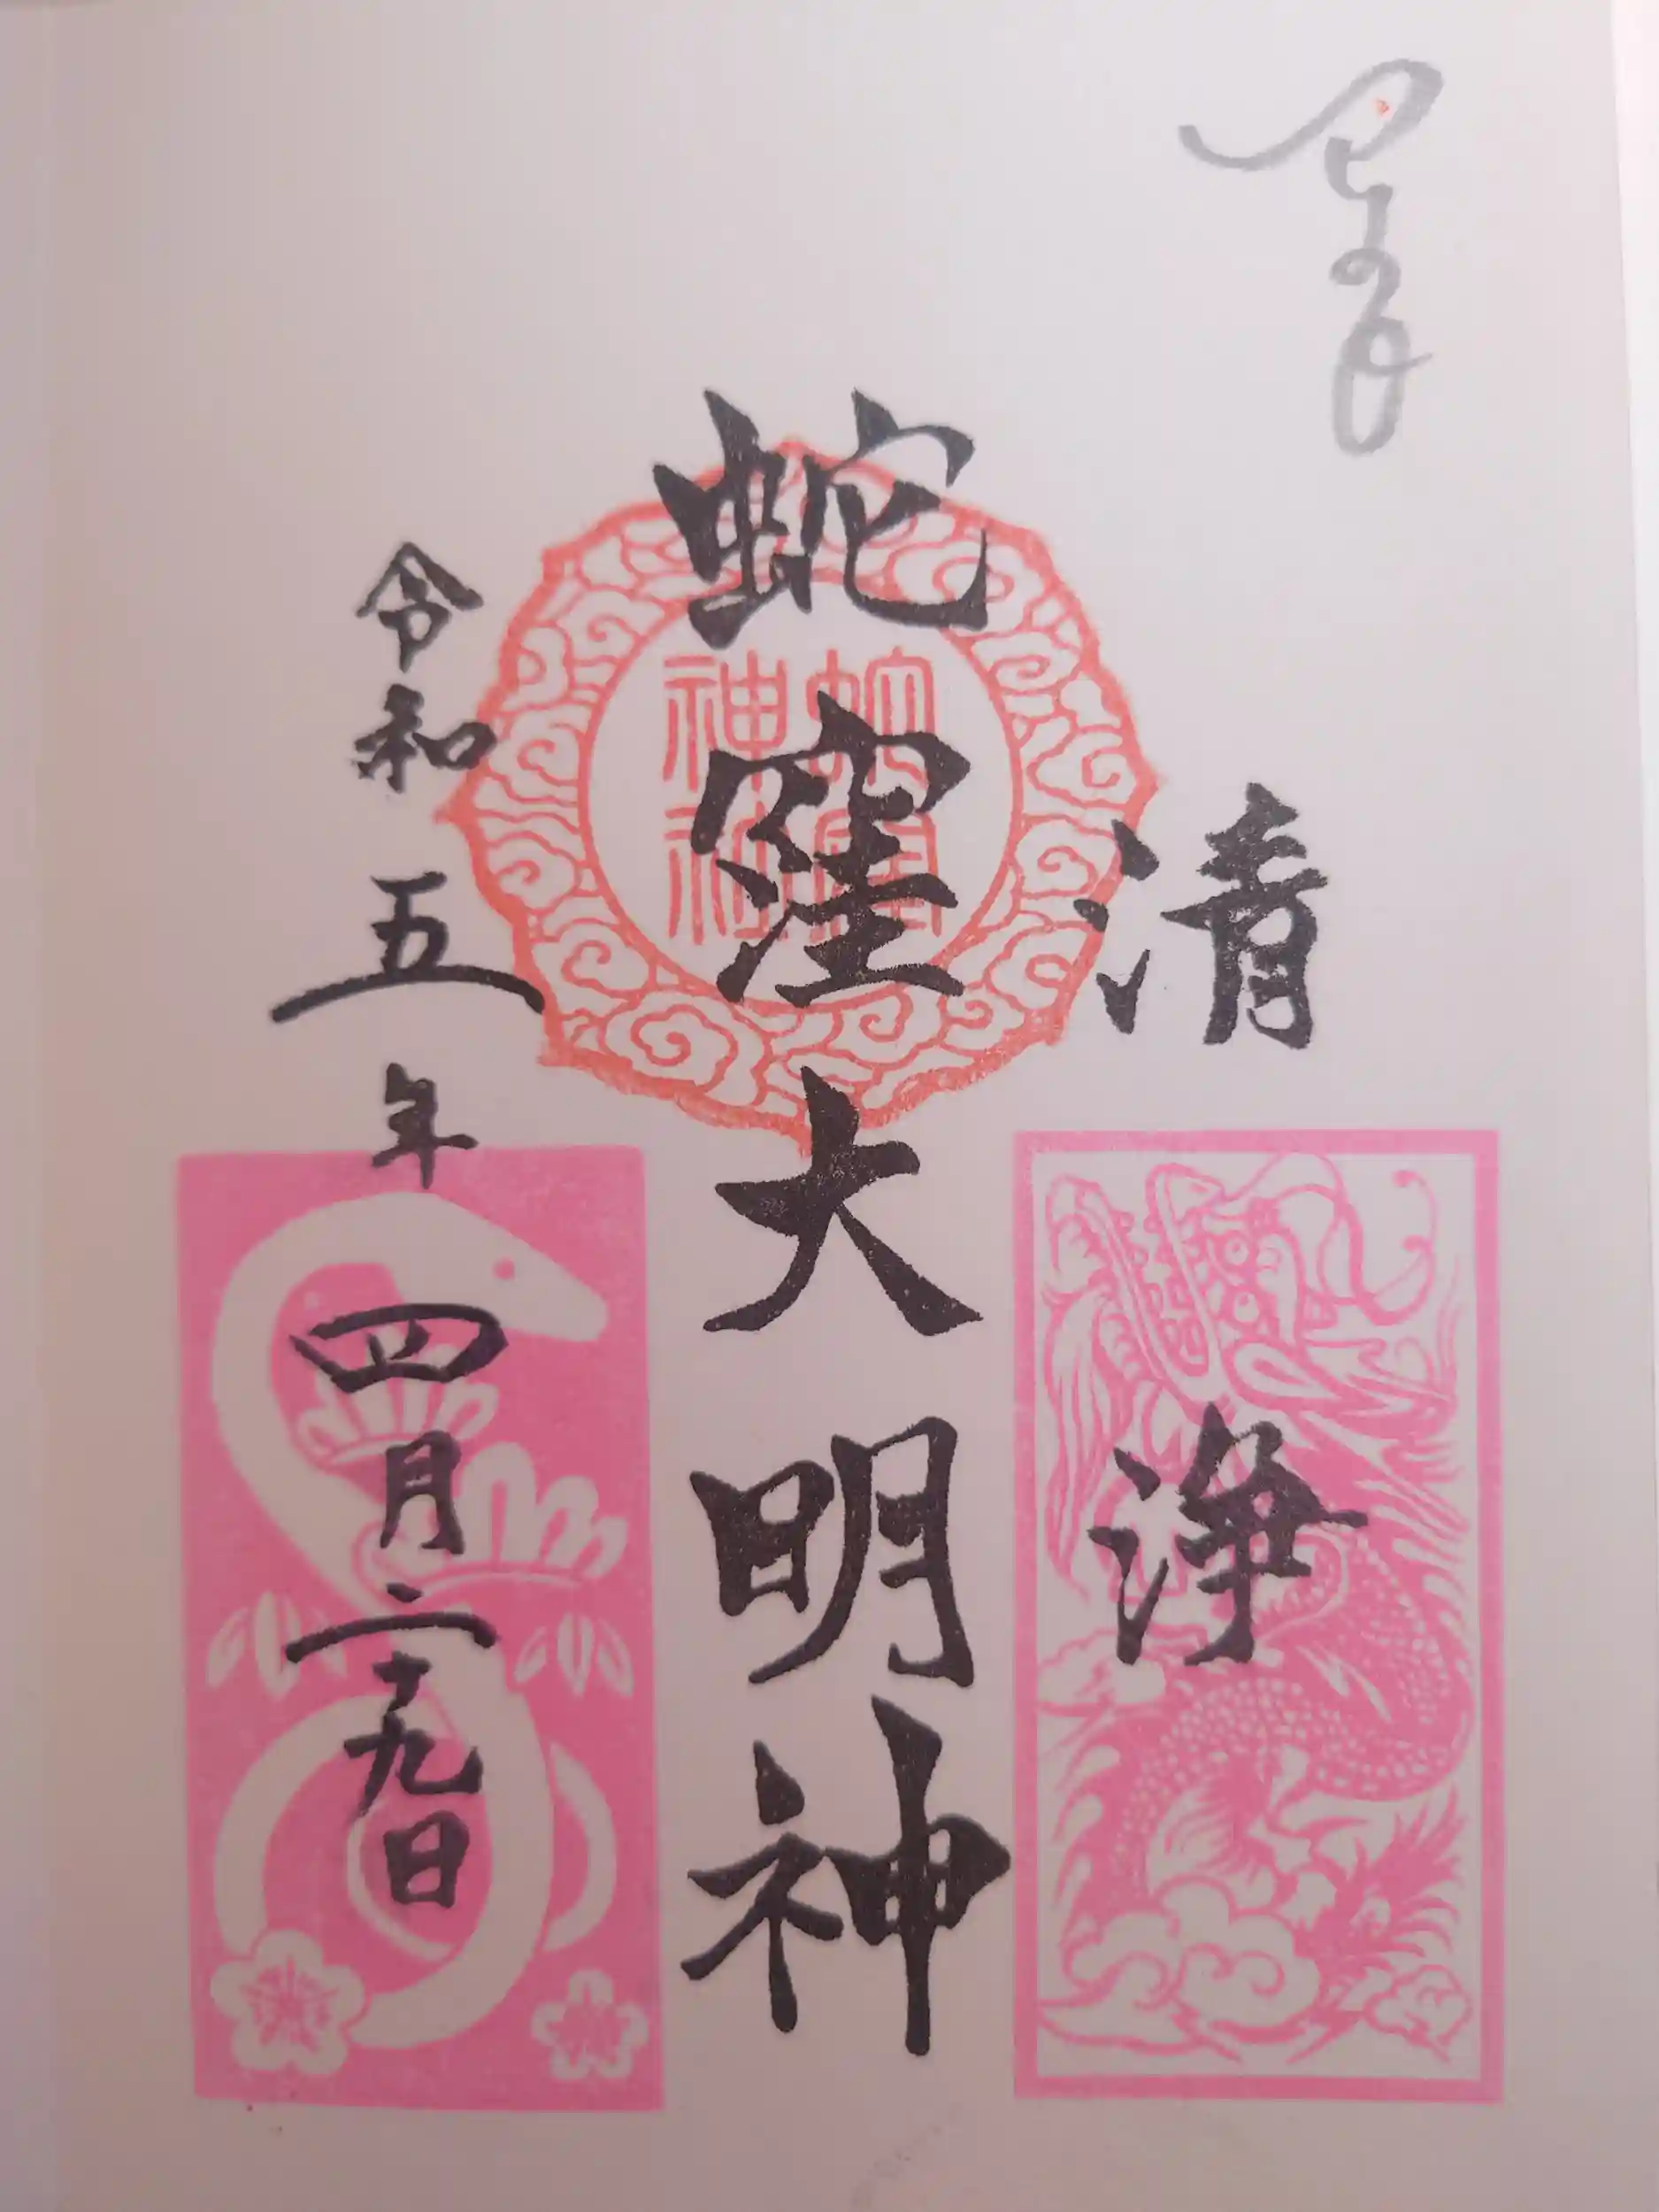 清浄
蛇窪大明神
蛇窪
神社
令和五年四月二十九日